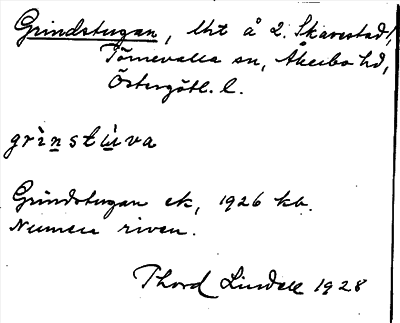 Grindstugan, lht å 2. Skavestad,
Törnevalla sn, Åkerbo hd,
Östergötl. l.
grìnstùva
Grindstugan ek, 1926 kb.
Numera riven.
Thord Lindell 1928